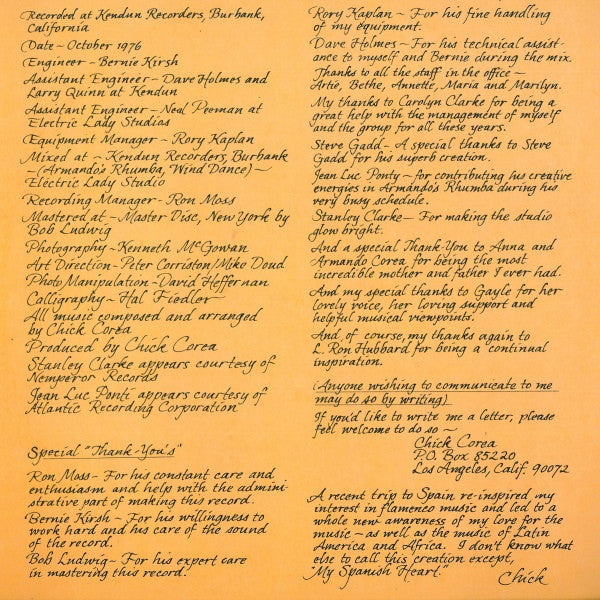 Recorded at Kendun Recorders, Burbank,
California
Date - October 1976
Engineer - Bernie Kirsh
Assistant Engineer - Dave Holmes and
Larry Quinn at Kendun
Assistant Engineer - Neal Peeman at
Electric Lady Studios
Equipment Manager ~ Rory Kaplan
Mixed at ~ Kendun Recorders, Burbank
~ (Armando's Rhumba, Wind Dance) ~
Electric Lady Studio
Recording Manager - Ron Moss
Mastered at - Master Disc, New York by
Bob Ludwig
Photography - Kenneth McGowan
Art Direction - Peter Corriston/Mike Doud
Photo Manipulation - David Heffernan
Calligraphy - Hal Fiedler
All music composed and arranged
by Chick Corea
Produced by Chick Corea
Stanley Clarke appears courtesy of
Nemperor Records
Jean Luc Ponti appears courtesy of
Atlantic Recording Corporation
Special "Thank-You's"
Ron Moss - For his constant care and
enthusiasm and help with the admini-
strative part of making this record.
Bernie Kirsh - For his willingness to
work hard and his care of the sound
of the record.
Bob Ludwig - For his expert care
in mastering this record.
Rory Kaplan ~ For his fine handling
of my equipment.
Dave Holmes - For his technical assist-
ance to myself and Bernie during the mix.
Thanks to all the staff in the office ~
Artie, Bethe, Annette, Maria and Marilyn.
My thanks to Carolyn Clarke for being a
great help with the management of myself
and the group for all these years.
Steve Gadd - A special thanks to Steve
Gadd for his superb creation.
Jean Luc Ponty - for contributing his creative
energies in Armando's Rhumba during his
very busy schedule.
Stanley Clarke - For making the studio
glow bright.
And a special Thank-You to Anna and
Armando Corea for being the most
incredible mother and father I ever had.
And my special thanks to Gayle for her
lovely voice, her loving support and
helpful musical viewpoints.
And, of course, my thanks again to
L. Ron Hubbard for being a continual
inspiration.
(Anyone wishing to communicate to me
may do so by writing)
If you'd like to write me a letter, please
feel welcome to do so ~
Chick Corea
P.O. Box 85220
Los Angeles, Calif. 90072
A recent trip to Spain re-inspired my
interest in flamenco music and led to a
whole new awareness of my love for the
music - as well as the music of Latin
America and Africa. I don't know what
else to call this creation except,
"My Spanish Heart."
Chick